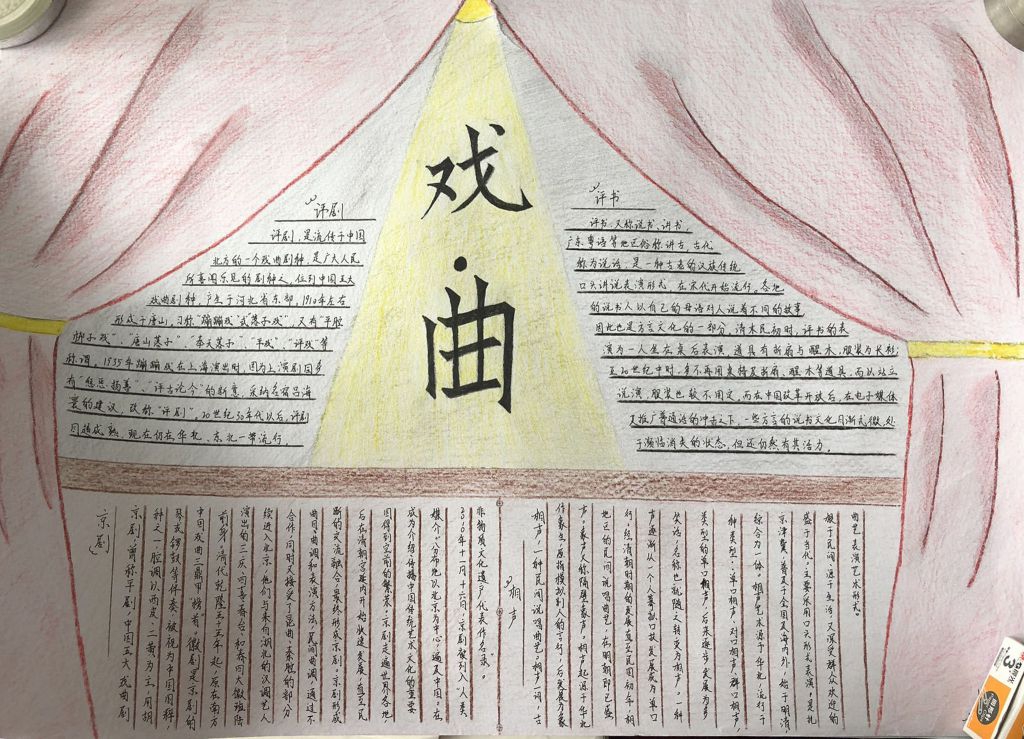 戏·曲
评剧
评剧,是流传于中国
北方的一个戏曲剧种,是广大人民
所喜闻乐见的剧种之一,位列中国五大
戏曲剧种,产生于河北省东部,1910年左右
形成于唐山,习称“蹦蹦戏”或“落子戏”,又有“平腔
梆子戏”、“唐山落子”、“奉天落子”、“平戏”、“评戏”等
称谓。1935年蹦蹦戏在上海演出时,因为上演剧目多
有“惩恶扬善”、“评古论今”的新意,采纳名宿吕海
寰的建议,改称“评剧”。20世纪30年代以后,评剧
日趋成熟,现在仍在华北、东北一带流行。
评书
评书,又称说书、讲书,
广东粤语等地区俗称讲古,古代
称为说话,是一种古老的汉族传统
口头讲说表演形式,在宋代开始流行。各地
的说书人以自己的母语对人说着不同的故事
因此也是方言文化的一部分,清末民初时,评书的表
演为一人坐在桌后表演,道具有折扇与醒木,服装为长衫;
至20世纪中叶,多不再用桌椅及折扇、醒木等道具,而以站立
说演,服装也较不固定,而在中国改革开放后,在电子媒体
及推广普通话的冲击之下,一些方言的说书文化日渐式微,处
于濒临消失的状态,但还仍然有其活力。
京剧
京剧,曾称平剧,中国五大戏曲剧
种之一,腔调以西皮、二黄为主,用胡
琴或锣鼓等伴奏,被视为中国国粹,
中国戏曲三鼎甲“榜首”。徽剧是京剧的
前身,清代乾隆五十五年起,原在南方
演出的三庆、四喜、春台、和春四大徽班陆
续进入北京,他们与来自湖北的汉调艺人
合作,同时又接受了昆曲、秦腔的部分
曲目、曲调和表演方法,民间曲调,通过不
断的交流、融合,最终形成京剧。京剧形成
后在清朝宫廷内开始快速发展,直至民
国得到空前的繁荣。京剧走遍世界各地,
成为介绍、传播中国传统艺术文化的重要
媒介。分布地以北京为中心,遍及中国。在
2010年十一月十六日,京剧被列入“人类
非物质文化遗产代表作名录”。
相声
相声,一种民间说唱曲艺。相声一词,古
作象生,原指模拟别人的言行,后发展为象
声。象声又称隔壁象声。相声起源于华北
地区的民间说唱曲艺,在明朝即已盛
行。经清朝时期的发展直至民国初年,相
声逐渐从一个人摹拟口技发展成为单口
笑话,名称也就随之转变为相声。一种
类型的单口相声,后来逐步发展为多
种类型:单口相声、对口相声、群口相声,
综合为一体。相声艺术源于华北,流行于
京津冀,普及于全国及海内外,始于明清,
盛于当代。主要采用口头形式表演。是扎
根于民间、源于生活、又深受群众欢迎的
曲艺表演艺术形式。